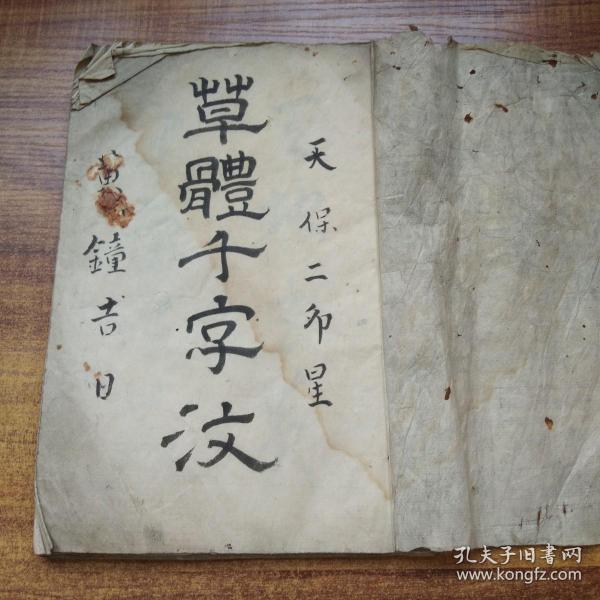 天保二卯星
草體千字文
黄鐘吉日
孔夫子旧書网
www.kongfz.com